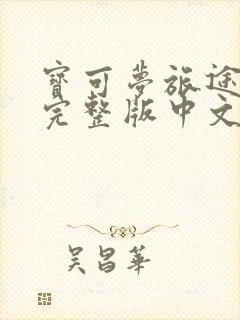 寶可夢旅途
完整版中文
吳昌華